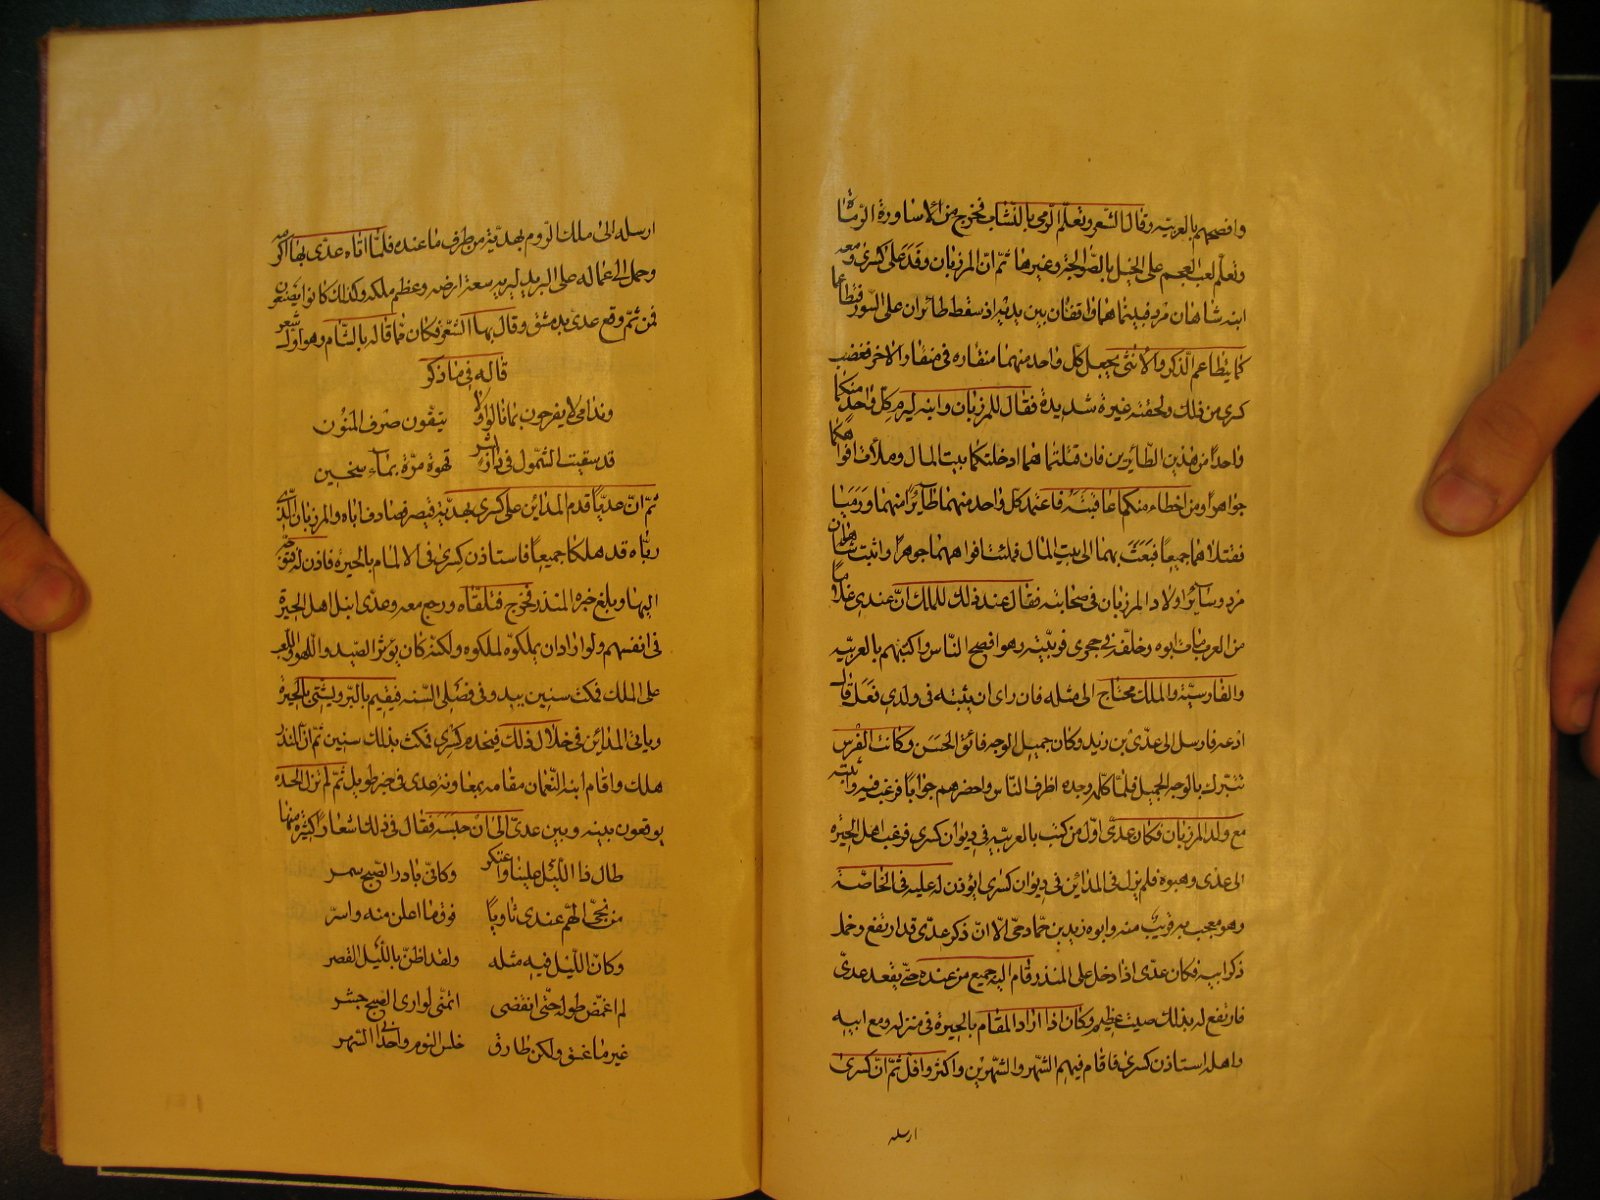 وافصحهم بالعربيه وقال الشعر وتعلم الرمي بالنشاب فخرج من الاساورة الرماة
وتعلم لعب العجم على الخيل بالصوالجة وغيرها ثم ان المرزبان وفد على كسرى ومعه
ابنه شاهان مرد فبينما هما واقفان بين يديه اذ سقط طائران على السور فتطاعما
كما يتطاعم الذكر والانثى يجعل كل واحد منهما منقاره في منقار الاخر فغضب
كسرى من ذلك ولحقته غيرة شديدة فقال للمرزبان وابنه ليرم كل واحد منكما
واحدا من هذين الطائرين فان قتلتما هما ادخلتكما بيت المال وملأت افواهكما
جواهرا ومن اخطاء منكما عاقبته فاعتمد كل واحد منهما طائرا منهما ورميا
فقتلاهما جميعا فبعث بهما الى بيت المال فملئت افواههما جوهرا واثبت شاهان
مرد وسائر اولاد المرزبان في صحابته فقال عند ذلك للملك ان عندي غلاما
من العرب مات ابوه وخلفه في حجري فربيته وهو افصح الناس واكتبهم بالعربيه
والفارسيه والملك محتاج الى مثله فان راى ان يثبته في ولدي فعل قال
ادعه فارسل الى عدى بن زيد وكان جميل الوجه فائق الحسن وكانت الفرس
تتبرك بالوجه الجميل فلما كلمه وجده اظرف الناس واحضرهم جوابا فرغب فيه واثبته
مع ولد المرزبان فكان عدى اول من كتب بالعربيه في ديوان كسرى فرغب اهل الحيرة
الى عدى وهبوه فلم يزل في المدائن في ديوان كسرى يؤذن له عليه في الخاصة
وهو معجب به قريب منه وابوه زيد بن حماد حي الا ان ذكر عدى قد ارتفع وخمل
ذكر ابيه فكان عدى اذا دخل على المنذر قام اليه جميع من عنده حتى يقعد عدى
فارتفع له بذلك صيت عظيم وكان اذا اراد المقام بالحيرة في منزله ومع ابيه
واهله استاذن كسرى فاقام فيهم الشهر والشهرين واكثر واقل ثم ان كسرى
ارسله
ارسله الى ملك الروم بهدية من طرف ما عنده فلما اتاه عدى بها اكرمه
وحمل الى عماله على البريد ليريه سعة ارضه وعظم ملكه وكذلك كانوا يصنعون
فمن ثم وقع عدى بدمشق وقال بها الشعر فكان مما قاله بالشام وهو اول شعر
قاله في ما ذكر
وندامى لا يفرحون بما نالوا ولا يتقون صرف المنون
قد سقيت الشمول في دار بشر قهوة مرة بماء سخين
ثم ان عديا قدم المدائن على كسرى بهدية قيصر فصادف اباه والمرزبان الذى
رباه قد هلكا جميعا فاستاذن كسرى في الالمام بالحيرة فاذن له فتوجه
اليها وبلغ خبره المنذر فخرج فتلقاه ورجع معه وعدى انبل اهل الحيرة
في انفسهم ولو اراد ان يملكوه لملكوه ولكنه كان يؤثر الصيد واللهو واللعب
على الملك فمكث سنين يبدو في فصلى السنه فيقيم بالبر ويشتى بالحيرة
وياتي المدائن في خلال ذلك فيخدم كسرى فمكث بذلك سنين ثم ان المنذر
هلك واقام ابنه النعمان مقامه بمعاونة عدى في خبر طويل ثم لم تزل الحسدة
يوقعون بينه وبين عدى الى ان حبسه فقال في ذلك اشعارا كثيرة منها
طال ذا الليل علينا واعتكر وكانى بادر الصبح سمر
من نجى الهم عندى ثاويا فوق ما اعلن منه واسر
وكان الليل فيه مثله ولقد اظن بالليل القصر
لم اغمض طوله حتى انقضى اتمنى لو ارى الصبح جشر
غير ما عشق ولكن طارق خلس النوم واجدانى السهر